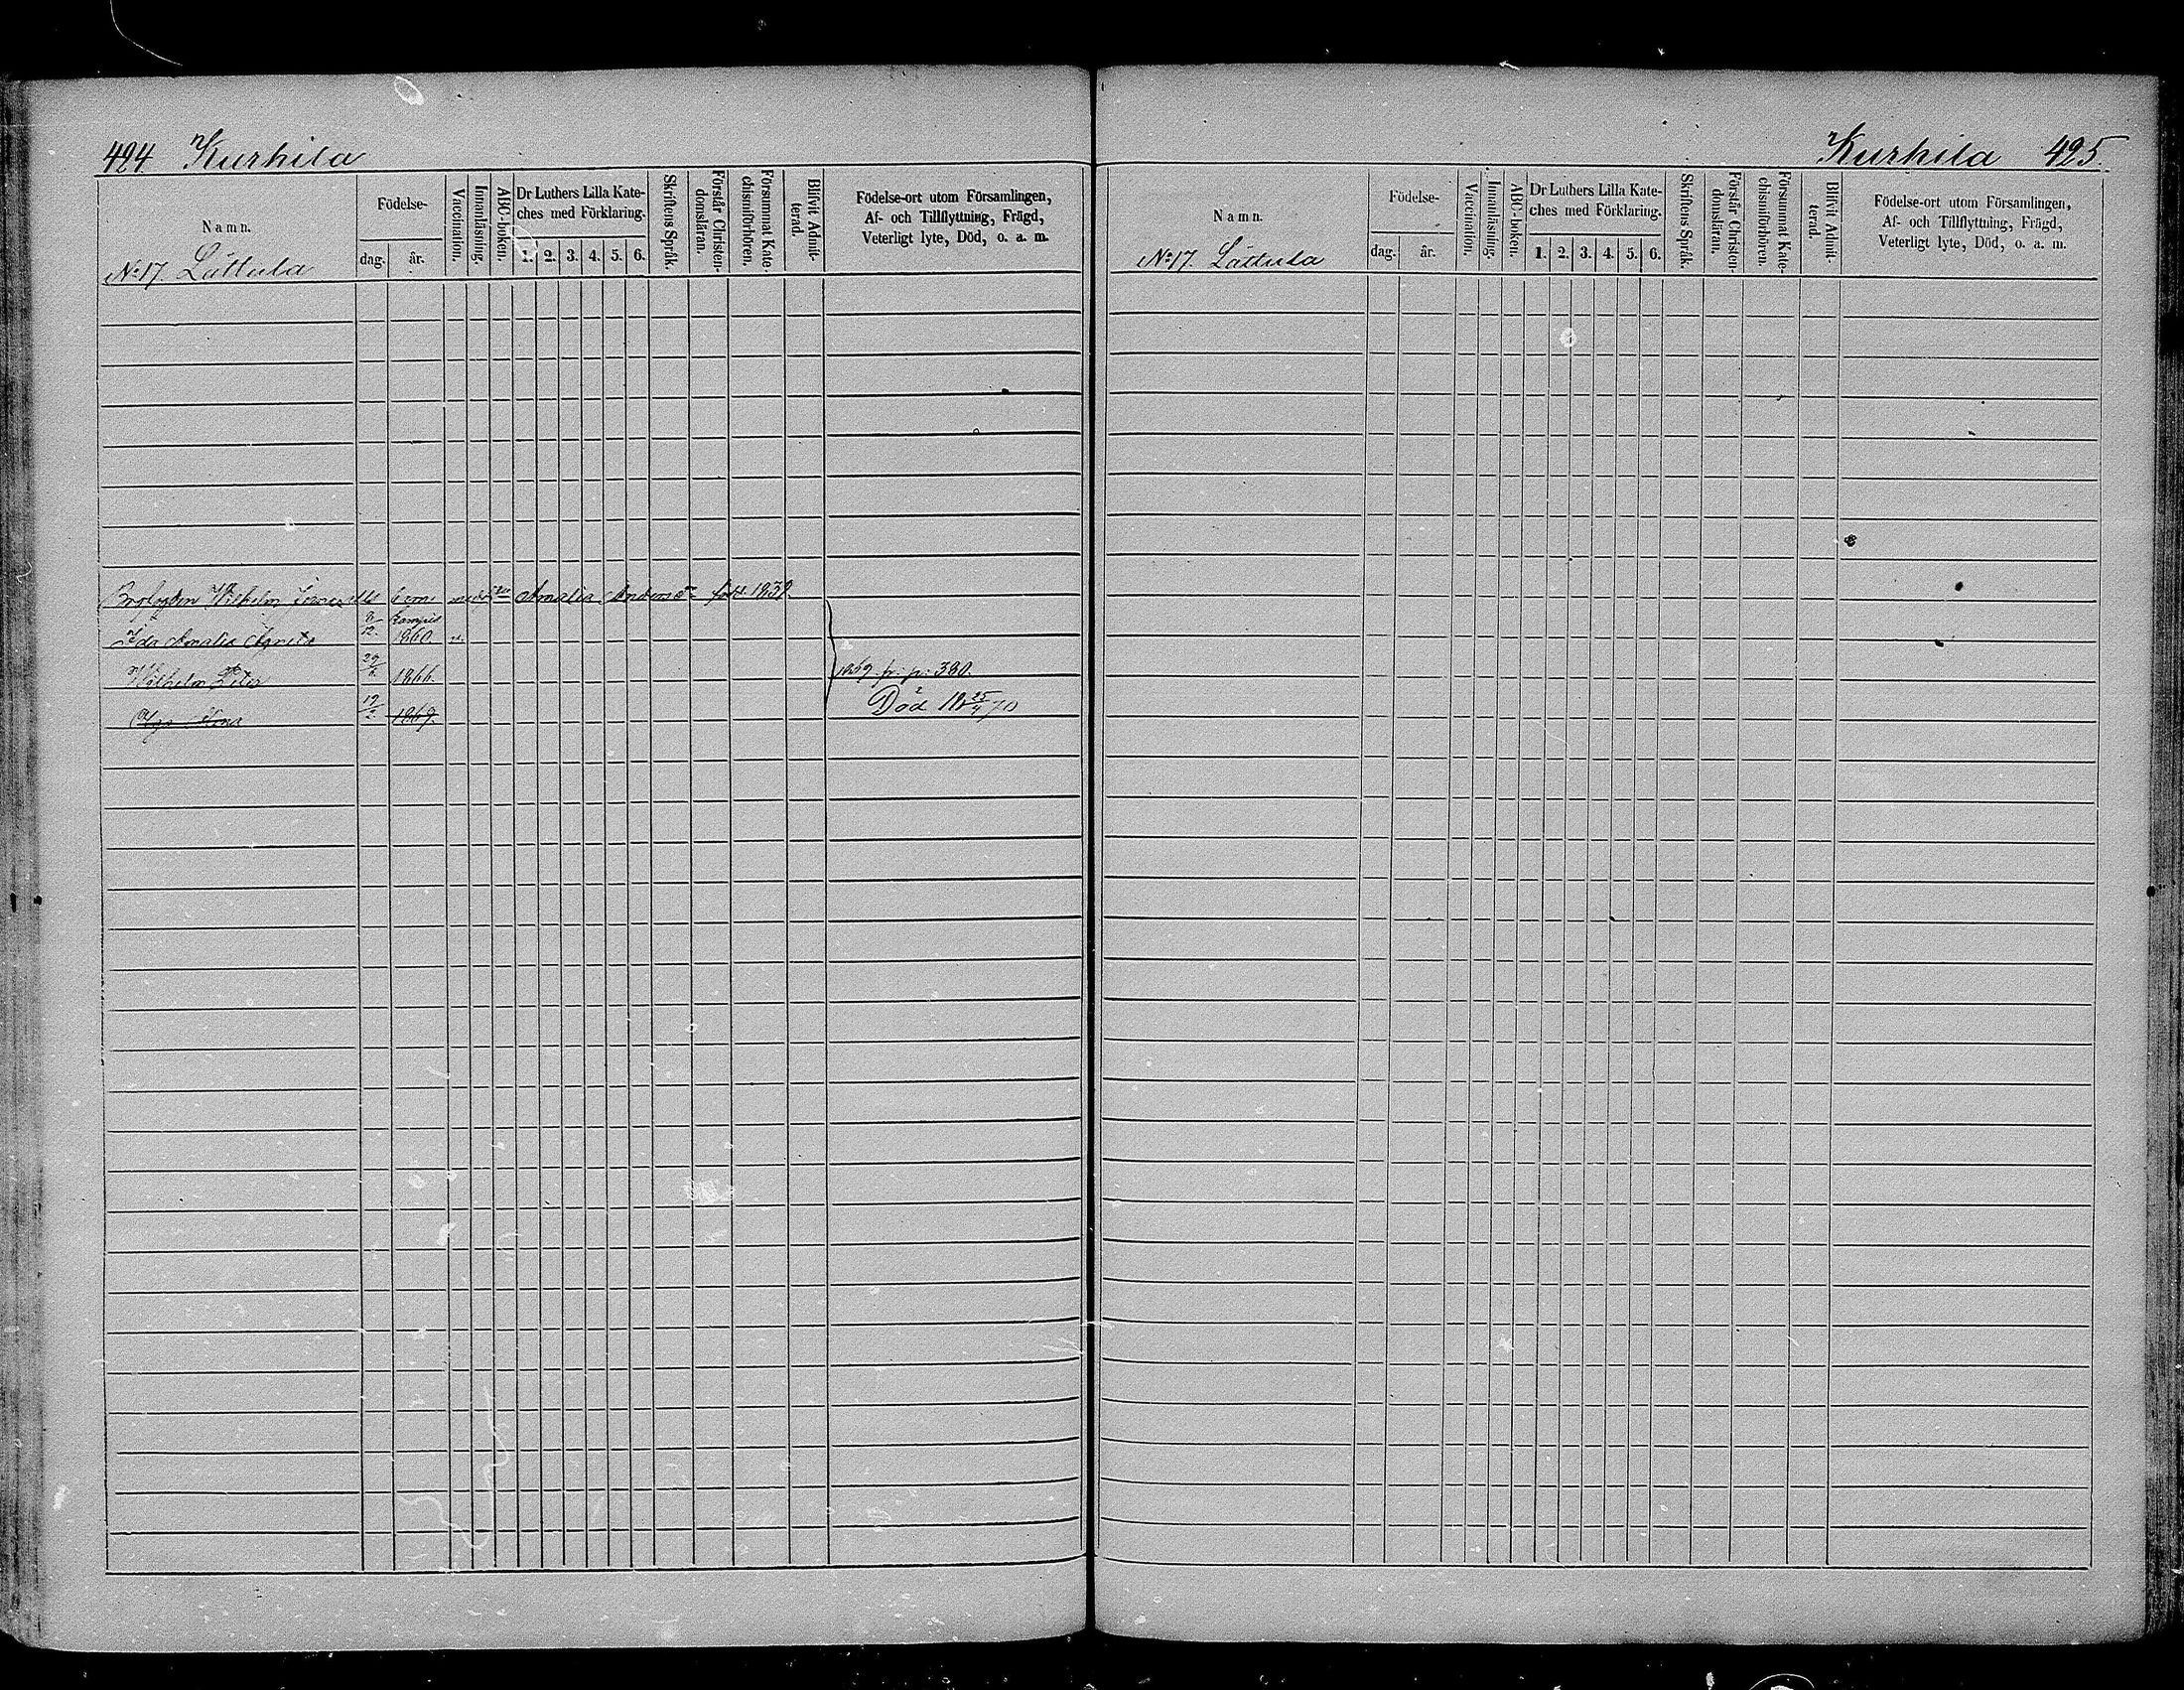 424. Kurhila
Namn.
No 17. Lättula
Födelse-
dag.
år.
Vaccination.
Innanläsning.
ABC-boken.
Dr Luthers Lilla Kate-
ches med Förklaring.
1. 2. 3. 4. 5. 6.
Skriftens Språk.
Förstår Christen-
domsläran.
Försummat Kate-
chismiförhören.
Blifvit Admit-
terad.
Födelse-ort utom Församlingen,
Af- och Tillflyttning, Frägd,
Veterligt lyte, Död, o. a. m.
Wilhelm Amalia Anders dr född 1839
Ida Amalia 8/12. 1860. v.
Wilhelm 1866. 1869 fr. p. 380.
19/2 1869. Död 18 25/4 70
Kurhila 425.
Namn.
No 17. Lättula
Födelse-
dag.
år.
Vaccination.
Innanläsning.
ABC-boken.
Dr Luthers Lilla Kate-
ches med Förklaring.
1. 2. 3. 4. 5. 6.
Skriftens Språk.
Förstår Christen-
domsläran.
Försummat Kate-
chismiförhören.
Blifvit Admit-
terad.
Födelse-ort utom Församlingen,
Af- och Tillflyttning, Frägd,
Veterligt lyte, Död, o. a. m.